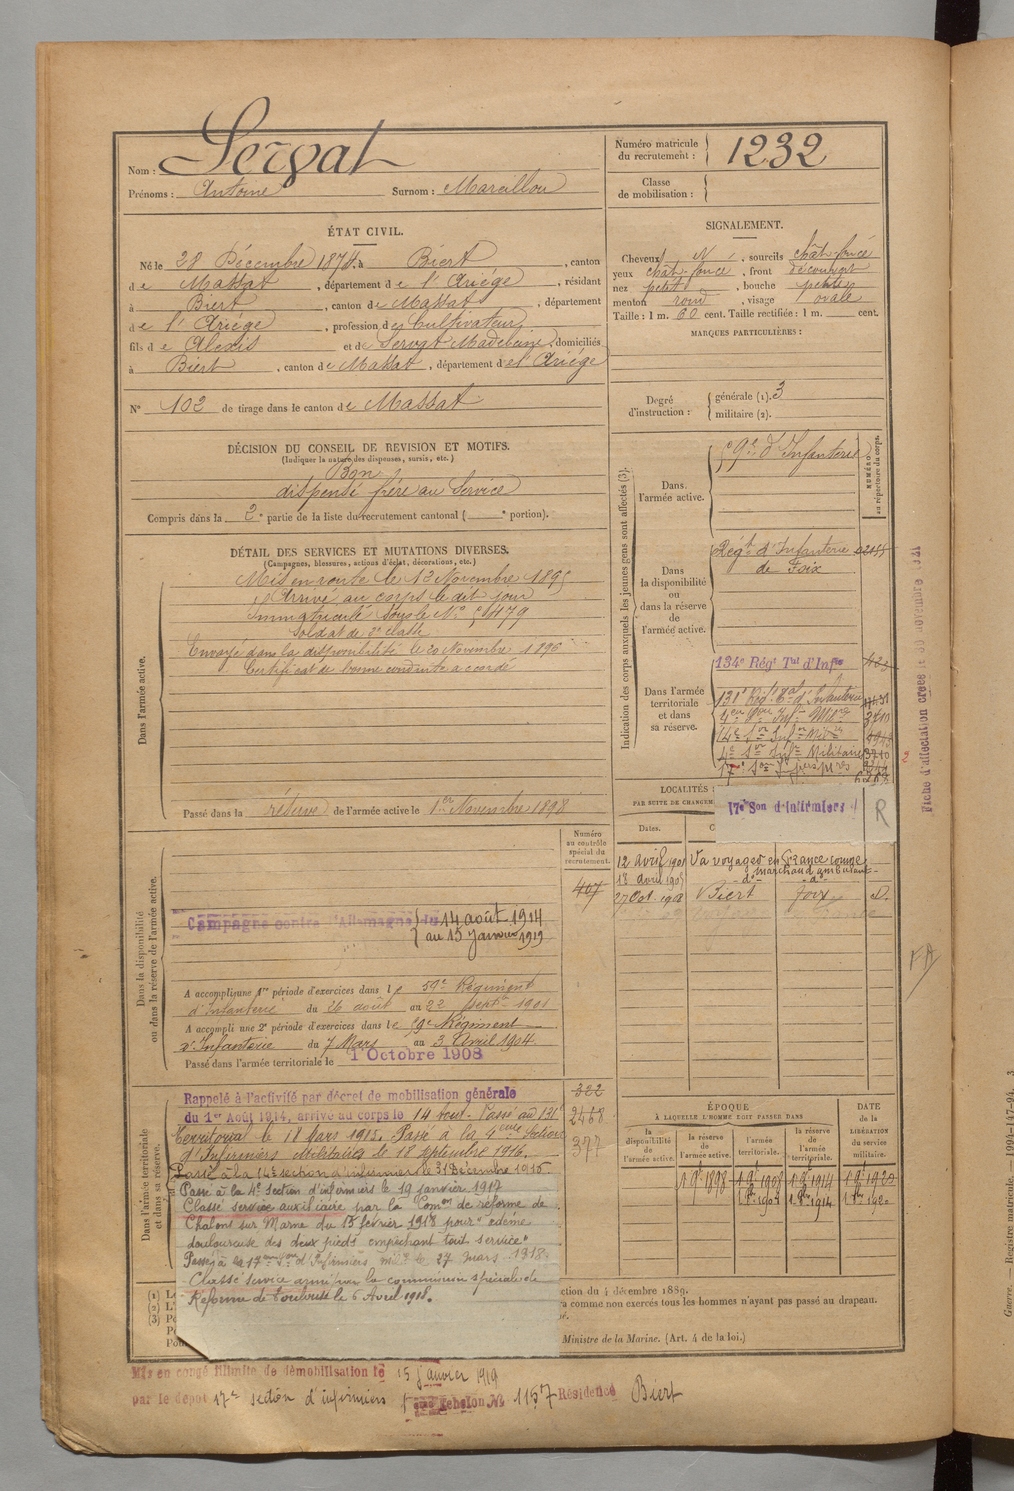 Nom : Servat
Prénoms : Antoine Surnom : Marcillou
Numéro matricule du recrutement : 1232
Classe de mobilisation :
ÉTAT CIVIL.
Né le 28 Décembre 1874 à Biert, canton
de Massat, département de l'Ariége, résidant
à Biert, canton de Massat, département
de l'Ariége, profession de Cultivateur
fils de Alexis et de Servat Madeleine, domiciliés
à Biert, canton de Massat, département de l'Ariége
N° 102 de tirage dans le canton de Massat
SIGNALEMENT.
Cheveux N, sourcils chât. foncé
yeux chât. foncé, front découvert
nez petit, bouche petite
menton rond, visage ovale
Taille : 1 m. 60 cent. Taille rectifiée : 1 m. cent.
MARQUES PARTICULIÈRES :
Degré d'instruction :
générale (1). 3
militaire (2).
DÉCISION DU CONSEIL DE REVISION ET MOTIFS.
(Indiquer la nature des dispenses, sursis, etc.)
Bon
dispensé frère au Service
Compris dans la 2e partie de la liste du recrutement cantonal ( e portion).
DÉTAIL DES SERVICES ET MUTATIONS DIVERSES.
(Campagnes, blessures, actions d'éclat, décorations, etc.)
Dans l'armée active.
Mis en route le 13 Novembre 1895
Arrivé au corps le dit jour
Immatriculé sous le N°
Soldat de 2e classe
Envoyé dans la disponibilité le 20 Novembre 1896
Certificat de bonne conduite accordé
Passé dans la réserve de l'armée active le 1er Novembre 1898
Indication des corps auxquels les jeunes gens sont affectés (3).
NUMÉRO au répertoire du corps.
Dans l'armée active.
59e d'Infanterie
Dans la disponibilité ou dans la réserve de l'armée active.
Régt d'Infanterie
de Foix
Dans l'armée territoriale et dans sa réserve.
134e Régt Tal d'Infie
131e Régt Tal d'Infanterie
17e Son d'infirmiers
R
LOCALITÉS
PAR SUITE DE CHANGEM
Dates.
12 avril 1901 Va voyager en France comme
marchand ambulant
18 avril 1905 -d°- -d°-
27 Oct. 1908 Biert Foix D.
Numéro au contrôle spécial du recrutement.
407
Dans la disponibilité ou dans la réserve de l'armée active.
Campagne contre l'Allemagne du 14 août 1914
au 15 Janvier 1919
A accompli une 1re période d'exercices dans le 59e Régiment
d'Infanterie du 26 août au 22 septbre 1901
A accompli une 2e période d'exercices dans le 59e Régiment
d'Infanterie du 7 Mars au 3 Avril 1904
Passé dans l'armée territoriale le 1 Octobre 1908
Dans l'armée territoriale et dans sa réserve.
322
2468
377
Rappelé à l'activité par décret de mobilisation générale
du 1er Août 1914, arrivé au corps le 14 août. Passé au 131e
Territorial le 18 Mars 1915. Passé à la 4eme Section
d'Infirmiers Militaires le 18 septembre 1916.
Passé à la 14e section d'infirmiers le 31 Décembre 1916
Passé à la 4e Section d'infirmiers le 19 janvier 1917
Classé service auxiliaire par la Comon de réforme de
Chalons sur Marne du 15 février 1918 pour "œdème
douloureuse des deux pieds empêchant tout service"
Passé à la 17eme Son d'Infirmiers milres le 27 mars 1918.
Classé service armé par la commission spéciale de
Réforme de Toulouse le 6 Avril 1918.
ÉPOQUE
À LAQUELLE L'HOMME DOIT PASSER DANS
la disponibilité de l'armée active.
la réserve de l'armée active.
l'armée territoriale.
la réserve de l'armée territoriale.
DATE de la LIBÉRATION du service militaire.
1 9bre 1898
ction du 4 décembre 1889.
a comme non exercés tous les hommes n'ayant pas passé au drapeau.
Ministre de la Marine. (Art. 4 de la loi.)
Mis en congé illimité de démobilisation le 15 Janvier 1919
par le dépôt 17e section d'infirmiers échelon N° 1157 Résidence Biert
FA
Guerre. — Registre matricule. 1994-147-94. 3